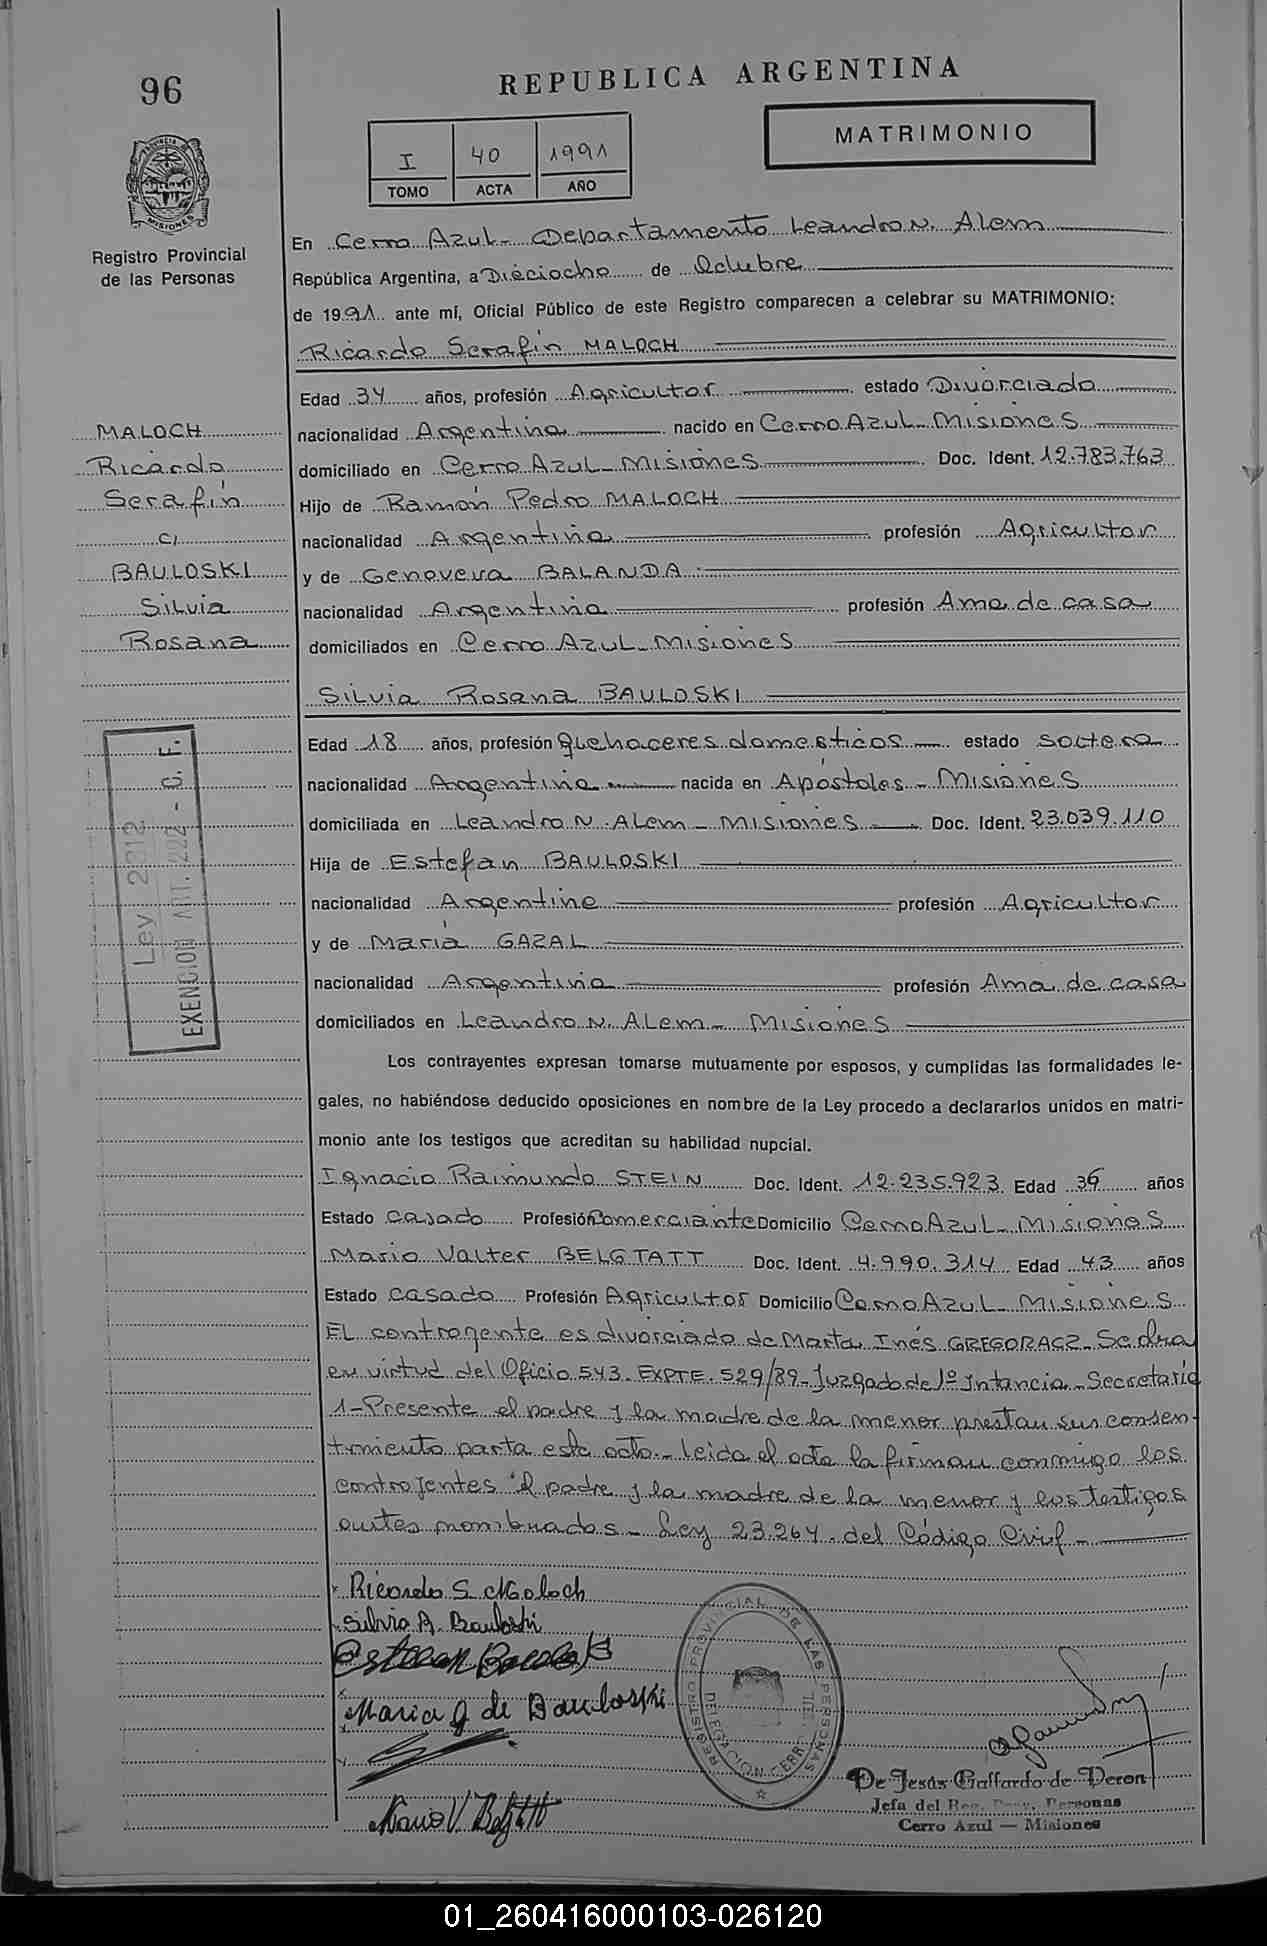 96
REPUBLICA ARGENTINA
MATRIMONIO
I 40 1991
TOMO ACTA AÑO
PROVINCIA DE MISIONES
Registro Provincial
de las Personas
En Cerro Azul - Departamento Leandro N. Alem
República Argentina, a Dieciocho de Octubre
de 1991 ante mí, Oficial Público de este Registro comparecen a celebrar su MATRIMONIO:
Ricardo Serafín MALOCH
Edad 34 años, profesión Agricultor estado Divorciado
MALOCH
nacionalidad Argentina nacido en Cerro Azul - Misiones
Ricardo
domiciliado en Cerro Azul - Misiones Doc. Ident. 12.783.763
Serafín
Hijo de Ramón Pedro MALOCH
c/
nacionalidad Argentina profesión Agricultor
BAULOSKI
y de Genoveva BALANDA
Silvia
nacionalidad Argentina profesión Ama de casa
Rosana
domiciliados en Cerro Azul - Misiones
Silvia Rosana BAULOSKI
Edad 18 años, profesión Quehaceres domesticos estado Soltera
nacionalidad Argentina nacida en Apóstoles - Misiones
domiciliada en Leandro N. Alem - Misiones Doc. Ident. 23.039.110
Hija de Estefan BAULOSKI
nacionalidad Argentine profesión Agricultor
y de Maria GAZAL
nacionalidad Argentina profesión Ama de casa
domiciliados en Leandro N. Alem - Misiones
Ley 2312
EXENCION ART. 222 - C. F.
Los contrayentes expresan tomarse mutuamente por esposos, y cumplidas las formalidades le-
gales, no habiéndose deducido oposiciones en nombre de la Ley procedo a declararlos unidos en matri-
monio ante los testigos que acreditan su habilidad nupcial.
Ignacio Raimundo STEIN Doc. Ident. 12.235.923 Edad 36 años
Estado Casado Profesión Comerciante Domicilio Cerro Azul - Misiones
Mario Valter BELGTATT Doc. Ident. 4.990.314 Edad 43 años
Estado Casado Profesión Agricultor Domicilio Cerro Azul - Misiones
El contrayente es divorciado de Marta Inés GREGORACZ -
en virtud del Oficio 543. EXPTE. 529/89 - Juzgado de 1º Intancia - Secretaria
1 - Presente el padre y la madre de la menor prestan su consen-
timiento parta este acto - Leida el acta la firman conmigo los
contrayentes el padre y la madre de la menor y los testigos
antes nombrados - Ley 23.264 del Código Civil -
Ricardo S. Maloch
Silvia R. Bauloski
Maria G de Bauloski
Mario V. Belgtatt
REGISTRO PROVINCIAL DE LAS PERSONAS
DELEGACION CERRO
De Jesús Gallardo de Veron
Jefa del Reg. Prov. Personas
Cerro Azul — Misiones
01_260416000103-026120